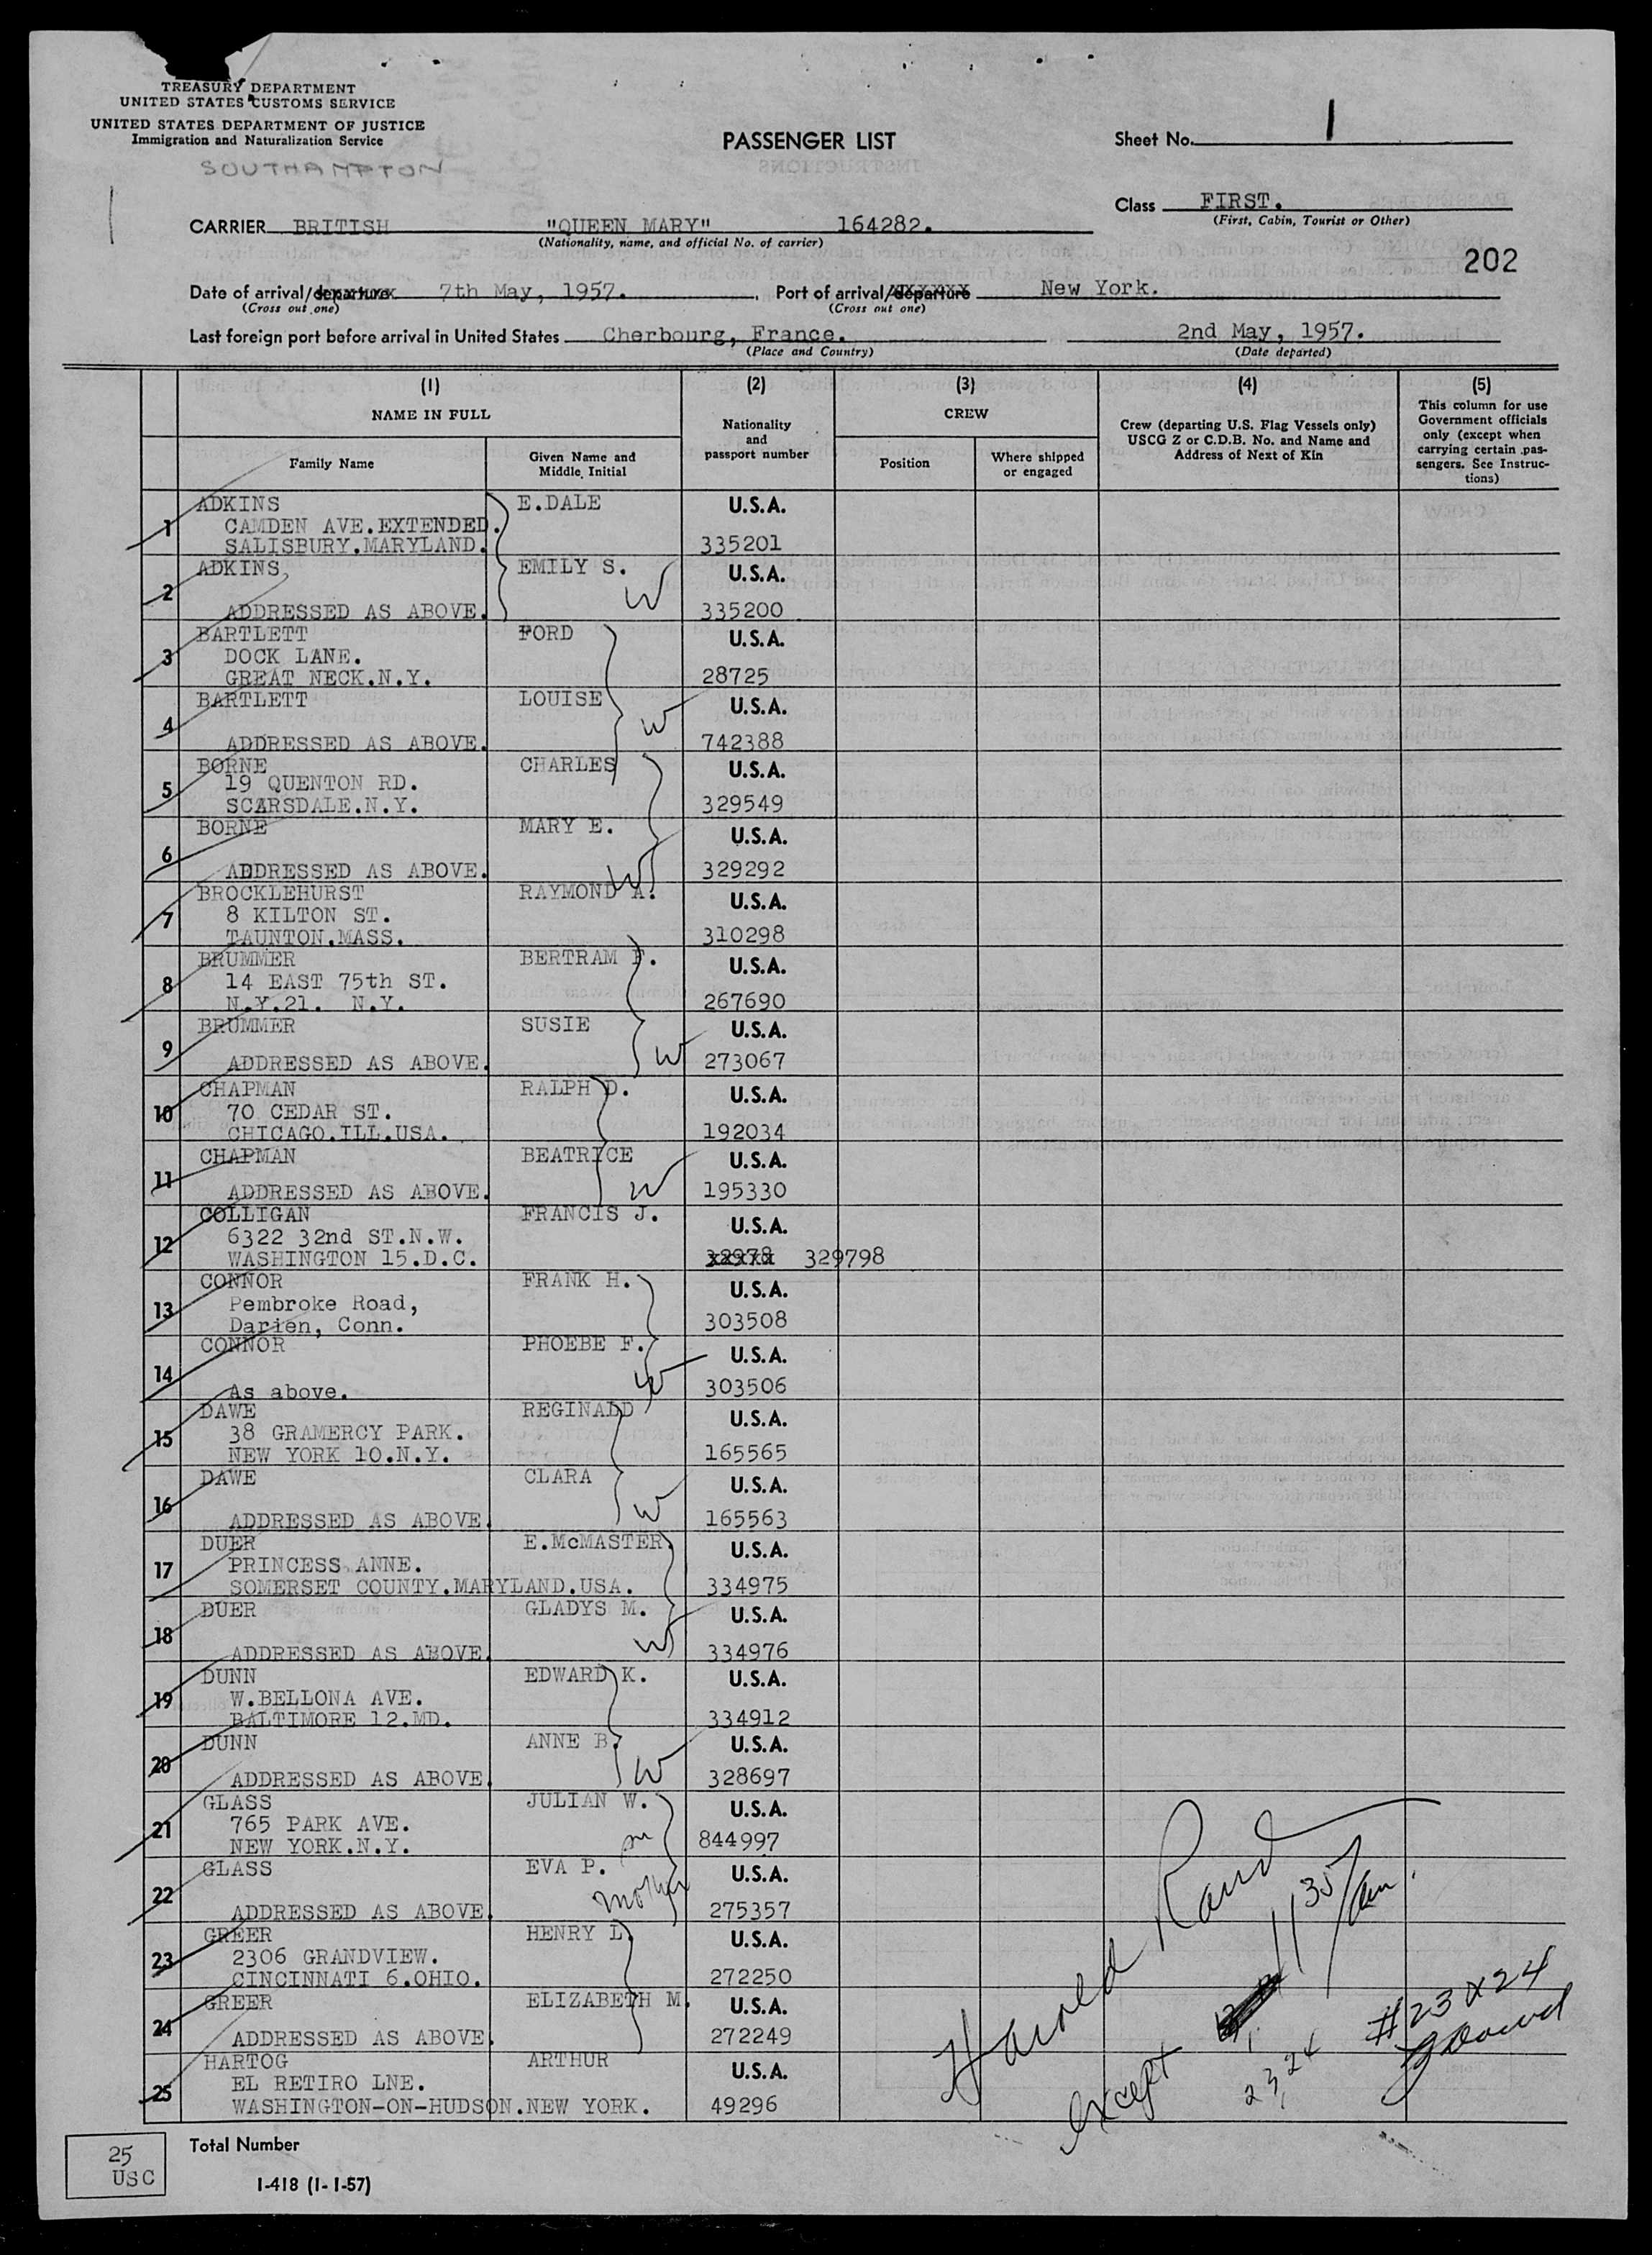 TREASURY DEPARTMENT
UNITED STATES CUSTOMS SERVICE
UNITED STATES DEPARTMENT OF JUSTICE
Immigration and Naturalization Service
SOUTHAMPTON
PASSENGER LIST
Sheet No. 1
Class FIRST.
(First, Cabin, Tourist or Other)
CARRIER BRITISH "QUEEN MARY" 164282.
(Nationality, name, and official No. of carrier)
202
Date of arrival/departure 7th May, 1957. Port of arrival/departure New York.
(Cross out one) (Cross out one)
Last foreign port before arrival in United States Cherbourg, France. 2nd May, 1957.
(Place and Country) (Date departed)
(1) (2) (3) (4) (5)
NAME IN FULL
Family Name
Given Name and Middle Initial
Nationality and passport number
CREW
Position
Where shipped or engaged
Crew (departing U.S. Flag Vessels only)
USCG Z or C.D.B. No. and Name and
Address of Next of Kin
This column for use
Government officials
only (except when
carrying certain pas-
sengers. See Instruc-
tions)
1 ADKINS E.DALE U.S.A.
CAMDEN AVE.EXTENDED.
SALISBURY.MARYLAND. 335201
2 ADKINS EMILY S. W U.S.A.
ADDRESSED AS ABOVE. 335200
3 BARTLETT FORD U.S.A.
DOCK LANE.
GREAT NECK.N.Y. 28725
4 BARTLETT LOUISE W U.S.A.
ADDRESSED AS ABOVE. 742388
5 BORNE CHARLES U.S.A.
19 QUENTON RD.
SCARSDALE.N.Y. 329549
6 BORNE MARY E. W U.S.A.
ADDRESSED AS ABOVE. 329292
7 BROCKLEHURST RAYMOND A. U.S.A.
8 KILTON ST.
TAUNTON.MASS. 310298
8 BRUMMER BERTRAM F. U.S.A.
14 EAST 75th ST.
N.Y.21. N.Y. 267690
9 BRUMMER SUSIE W U.S.A.
ADDRESSED AS ABOVE. 273067
10 CHAPMAN RALPH D. U.S.A.
70 CEDAR ST.
CHICAGO.ILL.USA. 192034
11 CHAPMAN BEATRICE W U.S.A.
ADDRESSED AS ABOVE. 195330
12 COLLIGAN FRANCIS J. U.S.A.
6322 32nd ST.N.W.
WASHINGTON 15.D.C. 32978 329798
13 CONNOR FRANK H. U.S.A.
Pembroke Road,
Darien, Conn. 303508
14 CONNOR PHOEBE F. W U.S.A.
As above. 303506
15 DAWE REGINALD U.S.A.
38 GRAMERCY PARK.
NEW YORK 10.N.Y. 165565
16 DAWE CLARA W U.S.A.
ADDRESSED AS ABOVE. 165563
17 DUER E.McMASTER. U.S.A.
PRINCESS ANNE.
SOMERSET COUNTY.MARYLAND.USA. 334975
18 DUER GLADYS M. W U.S.A.
ADDRESSED AS ABOVE. 334976
19 DUNN EDWARD K. U.S.A.
W.BELLONA AVE.
BALTIMORE 12.MD. 334912
20 DUNN ANNE B. W U.S.A.
ADDRESSED AS ABOVE. 328697
21 GLASS JULIAN W. U.S.A.
765 PARK AVE.
NEW YORK.N.Y. 844997
22 GLASS EVA P. mother U.S.A.
ADDRESSED AS ABOVE. 275357
23 GREER HENRY L. U.S.A.
2306 GRANDVIEW.
CINCINNATI 6.OHIO. 272250
24 GREER ELIZABETH M. U.S.A.
ADDRESSED AS ABOVE. 272249
25 HARTOG ARTHUR U.S.A.
EL RETIRO LNE.
WASHINGTON-ON-HUDSON.NEW YORK. 49296
Harold Rand
11 35/am.
except 23,24
#23 & 24
25
USC
Total Number
I-418 (1-1-57)